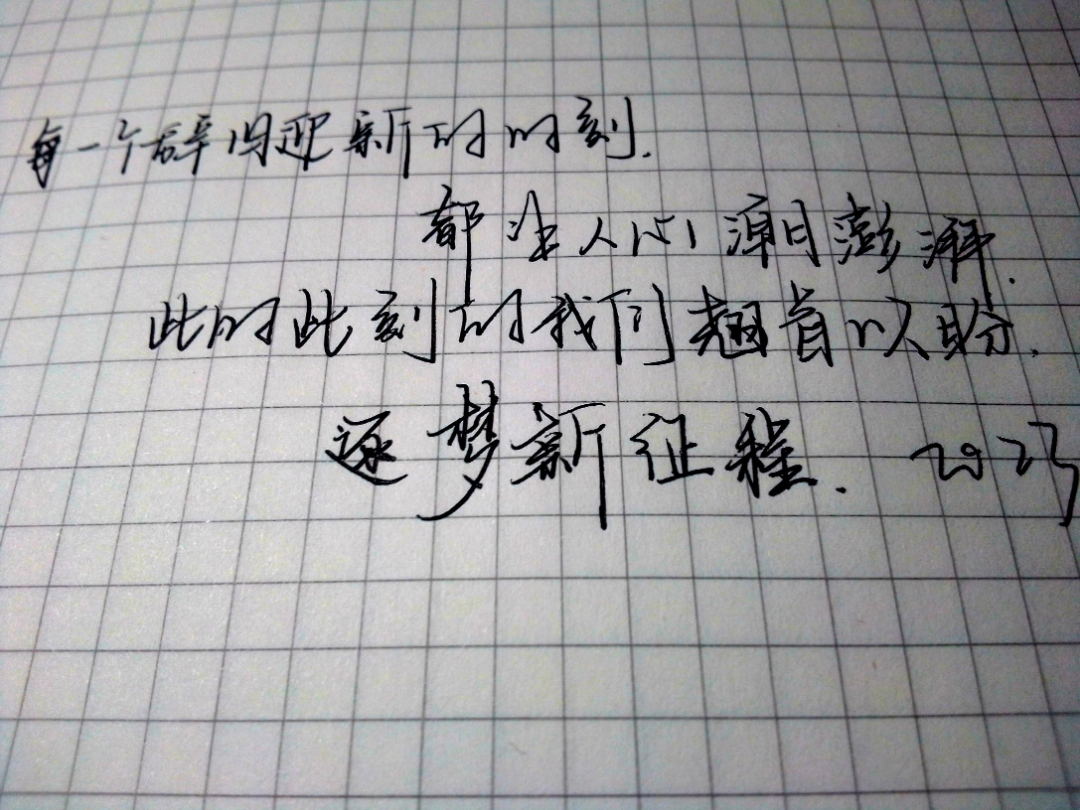 每一个辞旧迎新的时刻.
都让人心潮澎湃.
此时此刻的我们翘首以盼.
逐梦新征程. 2023